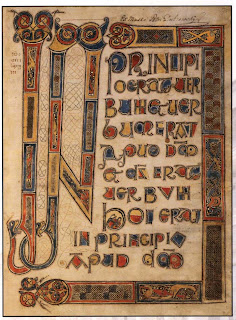 IN PRINCIPI
O ERAT UER
BUM ET UER
BUM ERAT
APUD DM
ET DS ERAT
UERBUM
hOC ERAT
IN PRINCIPIO
APUD DM